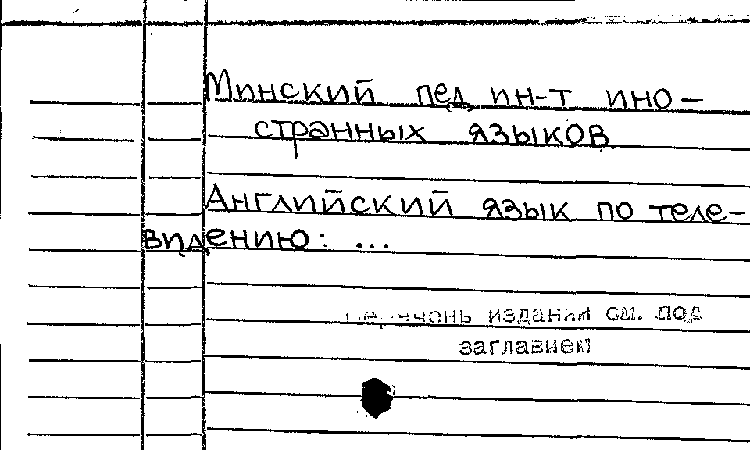 Минский пед. ин-т ино-
странных языков
Английский язык по теле-
видению: ...
Перечень издания см. под
заглавием